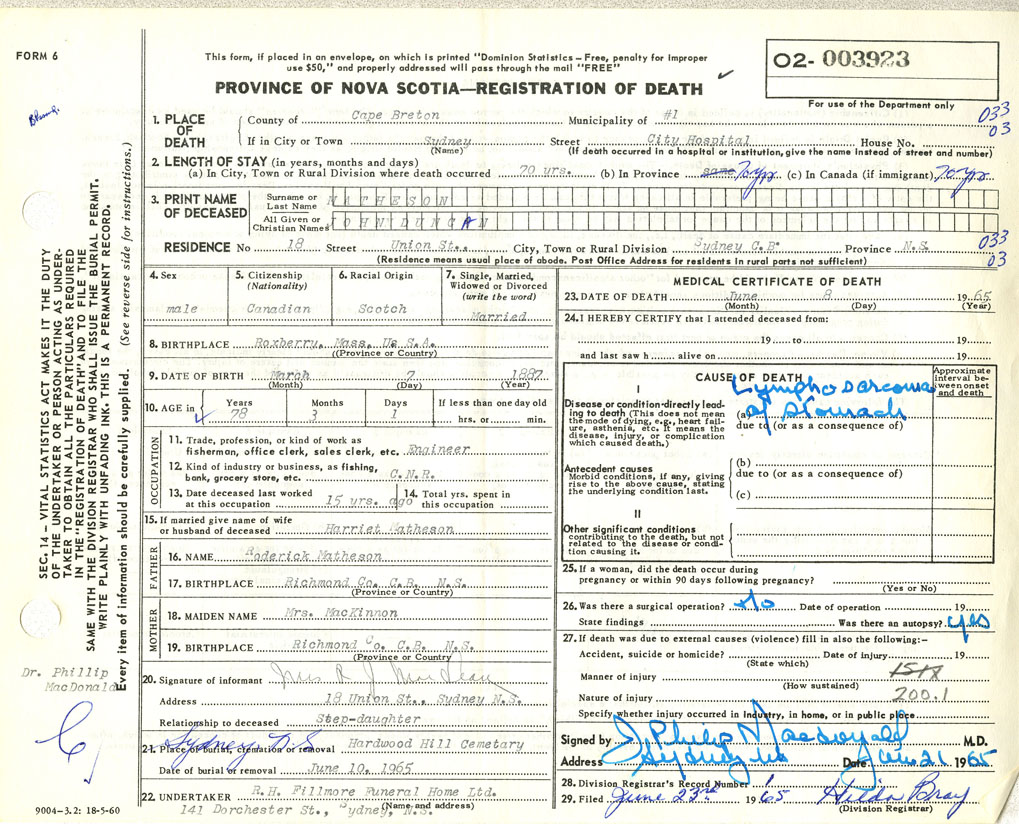 FORM 6
This form, if placed in an envelope, on which is printed "Dominion Statistics – Free, penalty for improper
use $50," and properly addressed will pass through the mail "FREE"
PROVINCE OF NOVA SCOTIA—REGISTRATION OF DEATH
02- 003923
For use of the Department only
033
03
1. PLACE OF DEATH
County of Cape Breton Municipality of #1
If in City or Town Sydney Street City Hospital House No.
(Name) (If death occurred in a hospital or institution, give the name instead of street and number)
2. LENGTH OF STAY (in years, months and days)
(a) In City, Town or Rural Division where death occurred 70 yrs. (b) In Province same 70 yrs (c) In Canada (if immigrant) 70 yrs
3. PRINT NAME OF DECEASED
Surname or Last Name MATHESON
All Given or Christian Names JOHN DUNCAN
RESIDENCE No 18 Street Union St., City, Town or Rural Division Sydney C.B. Province N.S.
033
03
(Residence means usual place of abode. Post Office Address for residents in rural parts not sufficient)
4. Sex male
5. Citizenship (Nationality) Canadian
6. Racial Origin Scotch
7. Single, Married, Widowed or Divorced (write the word) Married
8. BIRTHPLACE Roxberry, Mass, U. S.A.
(Province or Country)
9. DATE OF BIRTH March 7 1887
(Month) (Day) (Year)
10. AGE in Years 78 Months 3 Days 1 If less than one day old
hrs. or min.
OCCUPATION
11. Trade, profession, or kind of work as
fisherman, office clerk, sales clerk, etc. Engineer
12. Kind of industry or business, as fishing,
bank, grocery store, etc. C.N.R.
13. Date deceased last worked
at this occupation 15 yrs. ago
14. Total yrs. spent in
this occupation
15. If married give name of wife
or husband of deceased Harriet Matheson
FATHER
16. NAME Roderick Matheson
17. BIRTHPLACE Richmond Co. C.B. N.S.
(Province or Country)
MOTHER
18. MAIDEN NAME Mrs. MacKinnon
19. BIRTHPLACE Richmond Co. C.B. N.S.
(Province or Country)
20. Signature of informant Mrs R J MacLean
Address 18 Union St., Sydney N.S.
Relationship to deceased Step-daughter
21. Place of burial, cremation or removal Sydney N S Hardwood Hill Cemetary
Date of burial or removal June 10, 1965
22. UNDERTAKER R.H. Fillmore Funeral Home Ltd.
(Name and address)
141 Dorchester St., Sydney, N.S.
MEDICAL CERTIFICATE OF DEATH
23. DATE OF DEATH June 8 1965
(Month) (Day) (Year)
24. I HEREBY CERTIFY that I attended deceased from:
19 to 19
and last saw h alive on 19
CAUSE OF DEATH
Approximate interval between onset and death
I
Disease or condition directly leading to death (This does not mean
the mode of dying, e.g., heart failure, asthenia, etc. It means the
disease, injury, or complication
which caused death.)
(a) Lymphosarcoma
of stomach
due to (or as a consequence of)
Antecedent causes
Morbid conditions, if any, giving
rise to the above cause, stating
the underlying condition last.
(b)
due to (or as a consequence of)
(c)
II
Other significant conditions
contributing to the death, but not
related to the disease or condition causing it.
25. If a woman, did the death occur during
pregnancy or within 90 days following pregnancy?
(Yes or No)
26. Was there a surgical operation? No Date of operation 19
State findings Was there an autopsy? yes
27. If death was due to external causes (violence) fill in also the following:–
Accident, suicide or homicide? Date of injury 19
(State which)
Manner of injury 151X
(How sustained)
Nature of injury 200.1
Specify whether injury occurred in industry, in home, or in public place
Signed by J Philip Macdonald M.D.
Address Sydney NS Date June 21 1965
28. Division Registrar's Record Number 1
29. Filed June 23rd 1965 Hilda Bray
(Division Registrar)
SEC. 14 – VITAL STATISTICS ACT MAKES IT THE DUTY
OF THE UNDERTAKER OR PERSON ACTING AS UNDERTAKER TO OBTAIN ALL THE PARTICULARS REQUIRED
IN THE "REGISTRATION OF DEATH" AND TO FILE THE
SAME WITH THE DIVISION REGISTRAR WHO SHALL ISSUE THE BURIAL PERMIT.
WRITE PLAINLY WITH UNFADING INK. THIS IS A PERMANENT RECORD.
Every item of information should be carefully supplied. (See reverse side for instructions.)
Dr. Phillip
MacDonald
9004-3.2: 18-5-60